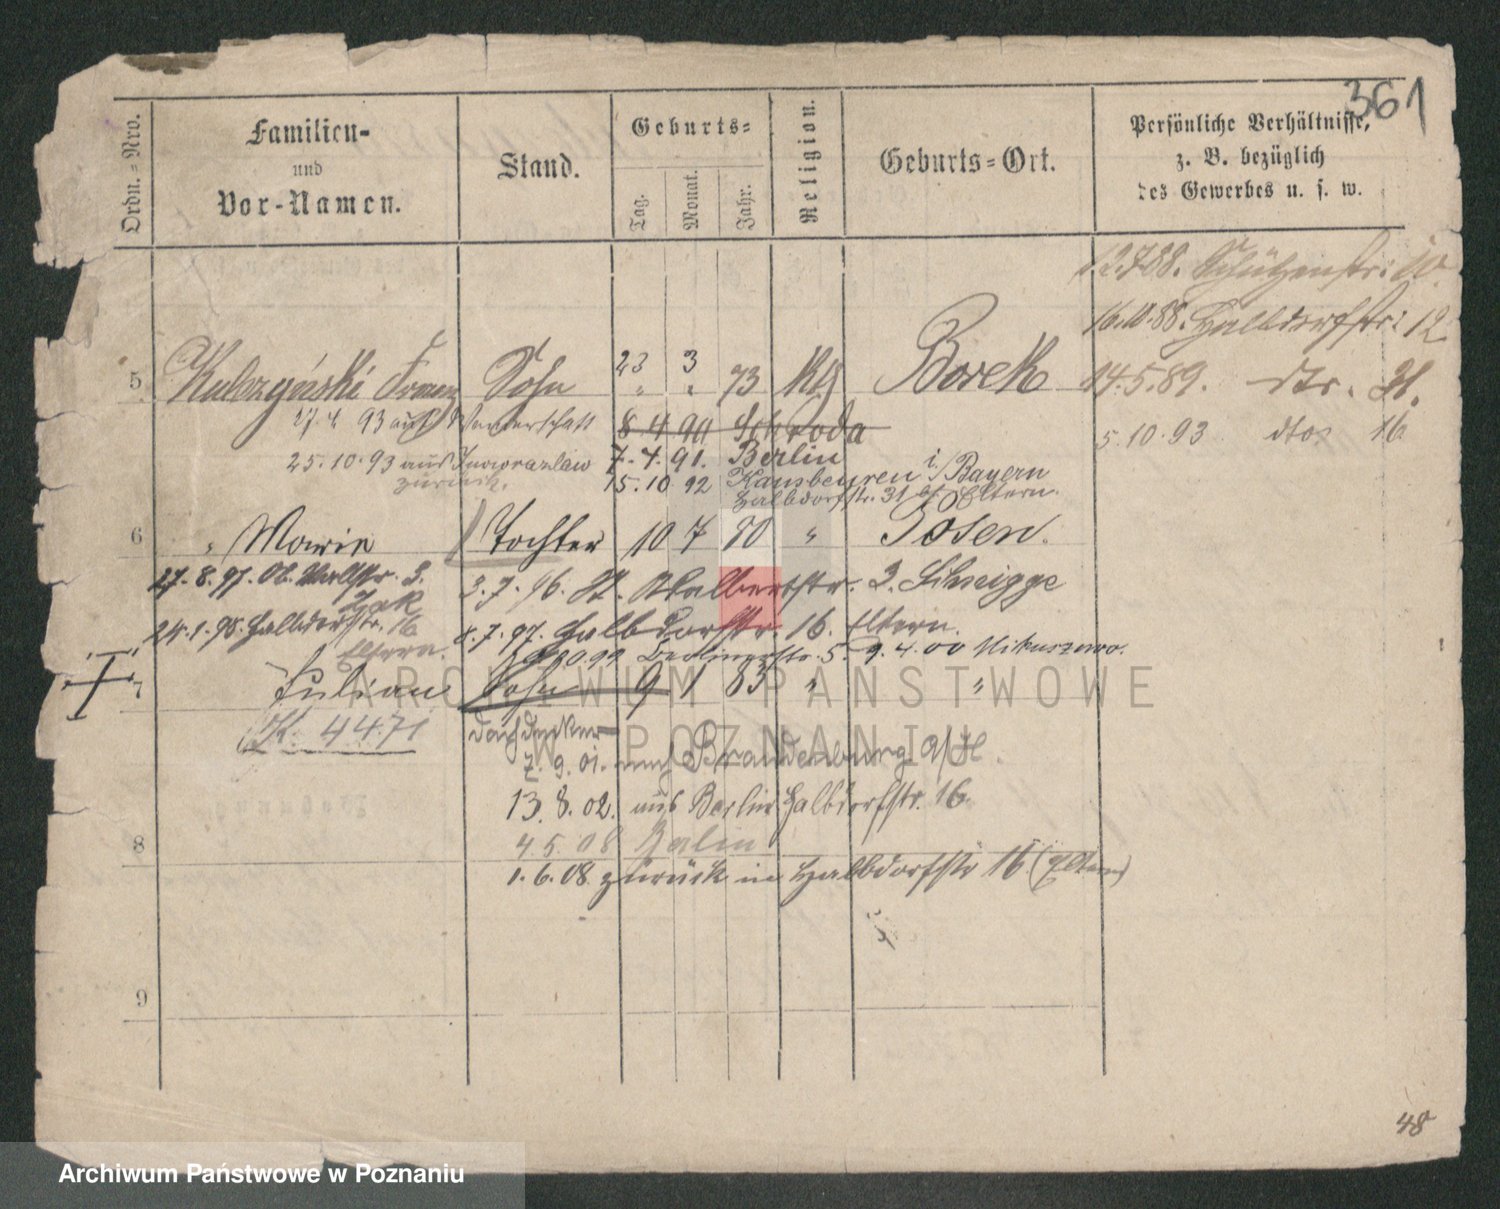 361
Ordn.=Nro.
Familien-
und
Vor-Namen.
Stand.
Geburts=
Tag.
Monat.
Jahr.
Religion.
Geburts=Ort.
Persönliche Verhältnisse,
z. B. bezüglich
des Gewerbes u. s. w.
12.7.88. Schützenstr: 10.
16.10.88. Halbdorfstr: 12
5 Kulczyński Franz Sohn 23 3 73 Kth Borek 14.5.89. dto. 31.
93 auf Wanderschaft 8.4.90 Schroda 5.10.93 dtos 16
25.10.93 aus Inowrazlaw 7.4.91. Berlin
zurück. 15.10.92 Kaufbeuren i/Bayern
Halbdorfstr. 31 bei Eltern.
6 " Marie Tochter 10 7 80 " Posen.
27.8.97. Ob. Wallstr. 3. 3.7.96. St. Adalbertstr. 2.
24.1.98. Halbdorfstr. 16 8.7.97. Halbdorfstr. 16. Eltern.
Eltern. Berlinerstr. 5. 9.4.00
7 Julian Sohn 9 1 83 " "
K. 4471 Dachdecker
7.9.01. nach Brandenburg a/H.
13.8.02. aus Berlin Halbdorfstr. 16.
8 4 5 08
1.6.08 zurück in Halbdorfstr 16 (Eltern)
9
48
ARCHIWUM PAŃSTWOWE
W POZNANIU
Archiwum Państwowe w Poznaniu